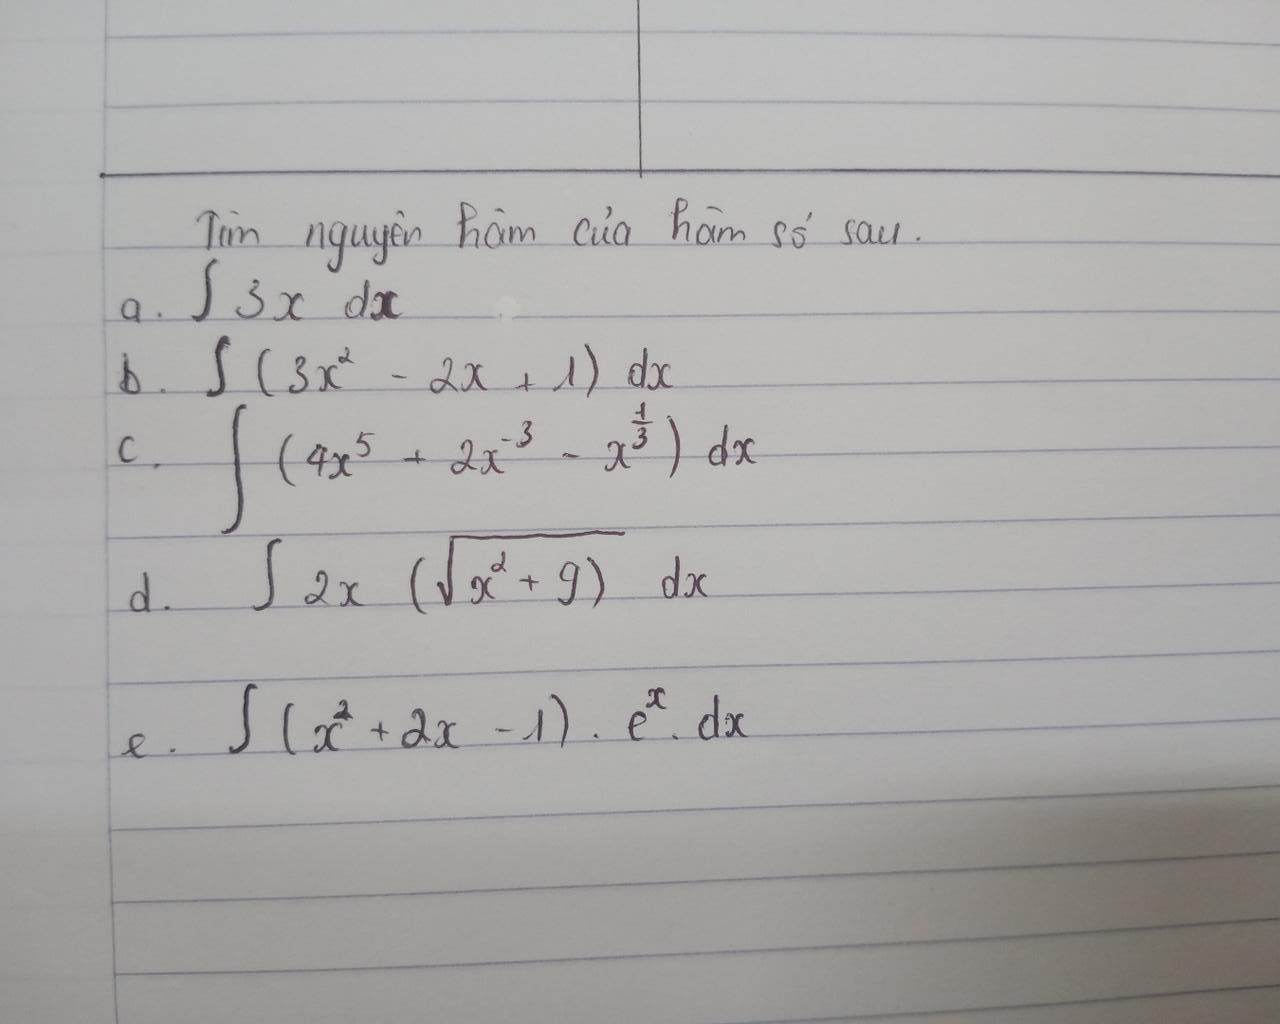 Tìm nguyên hàm của hàm số sau.
a. ∫ 3x dx
b. ∫ (3x² - 2x + 1) dx
c. ∫ (4x⁵ + 2x⁻³ - x^(1/3)) dx
d. ∫ 2x (√(x² + 9)) dx
e. ∫ (x² + 2x - 1) . eˣ . dx